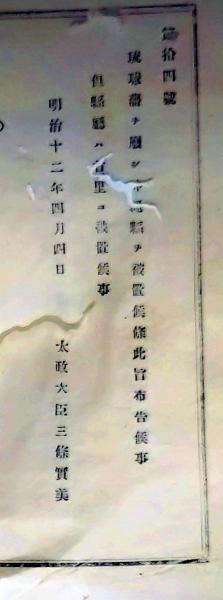 第拾四號
琉球藩ヲ廢シ繩縣ヲ被置候條此旨布告候事
但縣廳ハ首里ニ被置候事
明治十二年四月四日 太政大臣三條實美